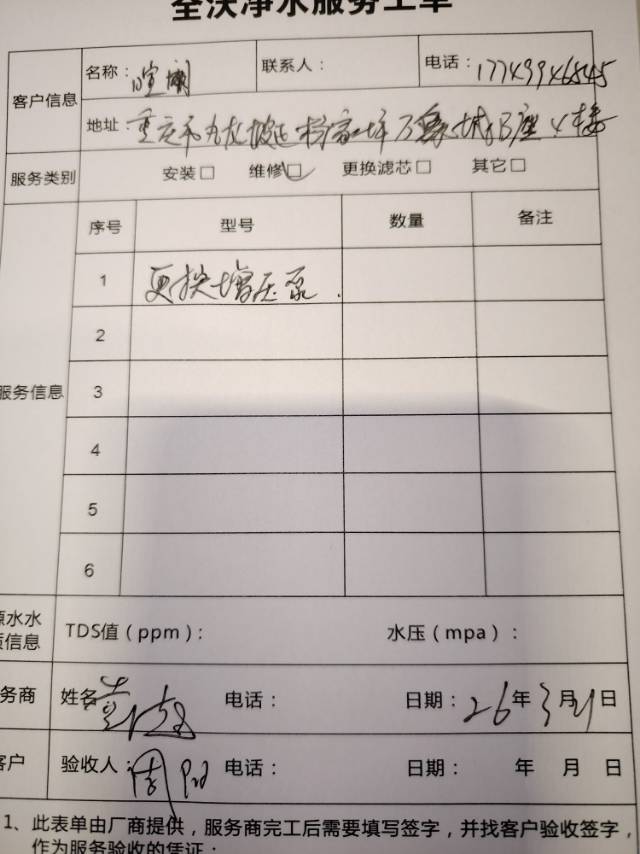 全沃净水服务工单
客户信息
名称: 喧阑 联系人: 电话: 17749946545
地址: 重庆市九龙坡区杨家坪万象城B座 楼
服务类别 安装□ 维修□ 更换滤芯□ 其它□
服务信息
序号 型号 数量 备注
1 更换增压泵.
2
3
4
5
6
原水水
质信息 TDS值(ppm): 水压(mpa):
务商 姓名 电话: 日期: 26年3月21日
客户 验收人: 周阳 电话: 日期: 年 月 日
1、此表单由厂商提供,服务商完工后需要填写签字,并找客户验收签字,
作为服务验收的凭证;